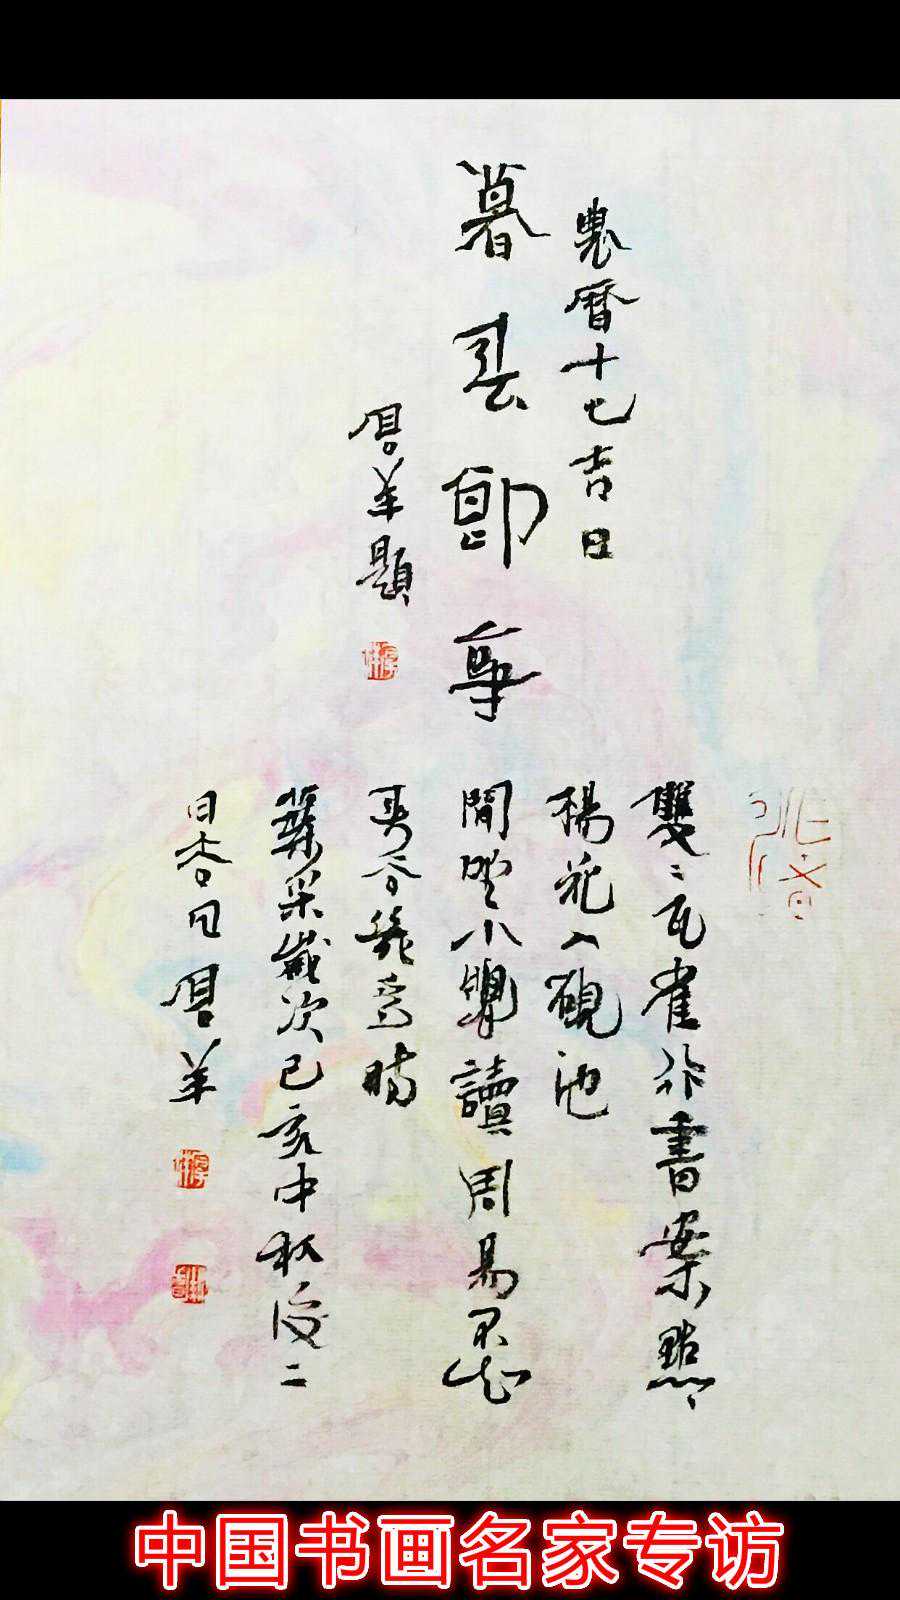 農暦十七吉日
暮春即事
厚羊題
雙〻瓦雀行書案點〻
楊花入硯池
閒坐小窗讀周易不知
春去幾多時
葉采歲次己亥中秋後二
日厚羊
中国书画名家专访